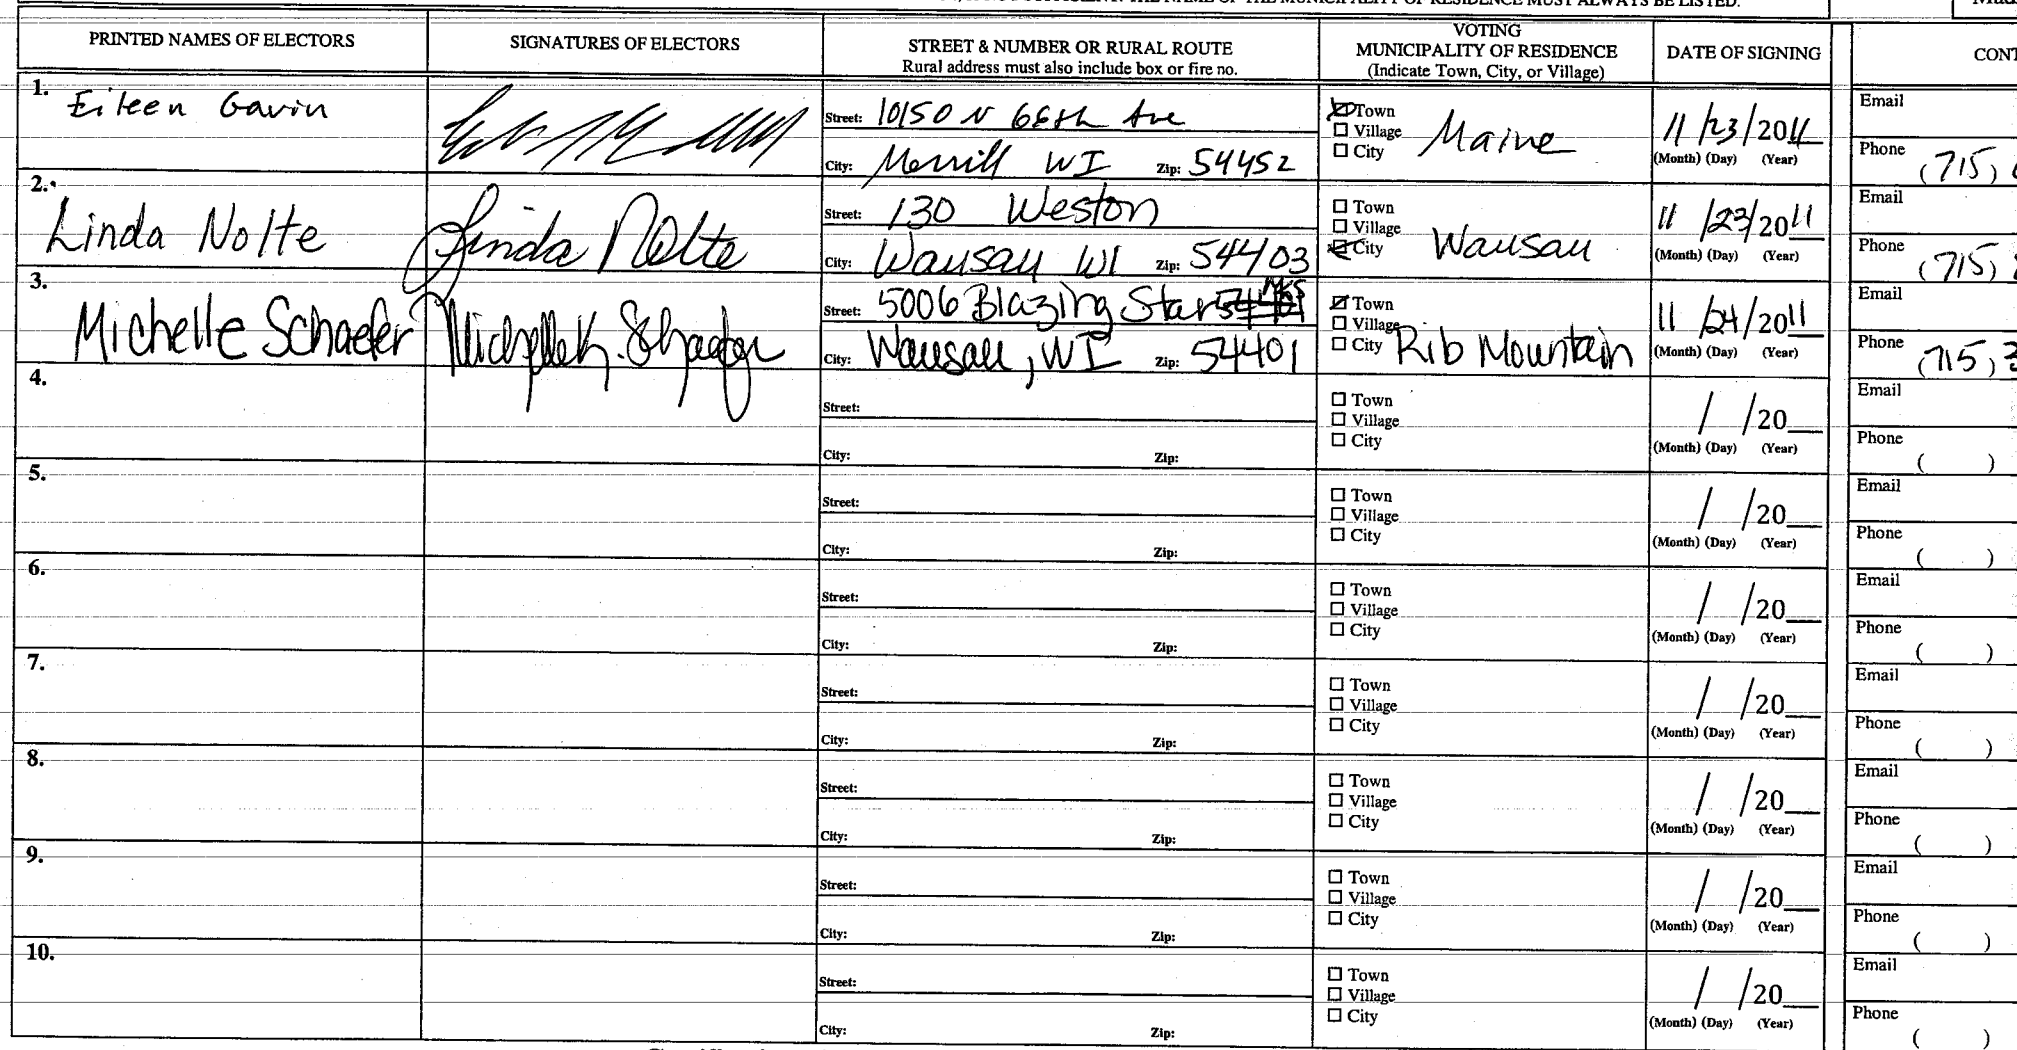 THE NAME OF THE MUNICIPALITY OF RESIDENCE MUST ALWAYS BE LISTED.
PRINTED NAMES OF ELECTORS
SIGNATURES OF ELECTORS
STREET & NUMBER OR RURAL ROUTE
Rural address must also include box or fire no.
VOTING
MUNICIPALITY OF RESIDENCE
(Indicate Town, City, or Village)
DATE OF SIGNING
CONT
1.
Eileen Gavin
Street: 10150 N 66th Ave
City: Merrill WI Zip: 54452
Town
Village
City
Maine
11/23/2011
(Month) (Day) (Year)
Email
Phone (715)
2.
Linda Nolte
Linda Nolte
Street: 130 Weston
City: Wausau WI Zip: 54403
Town
Village
City
Wausau
11/23/2011
(Month) (Day) (Year)
Email
Phone (715)
3.
Michelle Schaefer
Michelle K. Schaefer
Street: 5006 Blazing Star
City: Wausau, WI Zip: 54401
Town
Village
City
Rib Mountain
11/24/2011
(Month) (Day) (Year)
Email
Phone (715) 3
4.
Street:
City: Zip:
Town
Village
City
/ /20
(Month) (Day) (Year)
Email
Phone ( )
5.
Street:
City: Zip:
Town
Village
City
/ /20
(Month) (Day) (Year)
Email
Phone ( )
6.
Street:
City: Zip:
Town
Village
City
/ /20
(Month) (Day) (Year)
Email
Phone ( )
7.
Street:
City: Zip:
Town
Village
City
/ /20
(Month) (Day) (Year)
Email
Phone ( )
8.
Street:
City: Zip:
Town
Village
City
/ /20
(Month) (Day) (Year)
Email
Phone ( )
9.
Street:
City: Zip:
Town
Village
City
/ /20
(Month) (Day) (Year)
Email
Phone ( )
10.
Street:
City: Zip:
Town
Village
City
/ /20
(Month) (Day) (Year)
Email
Phone ( )